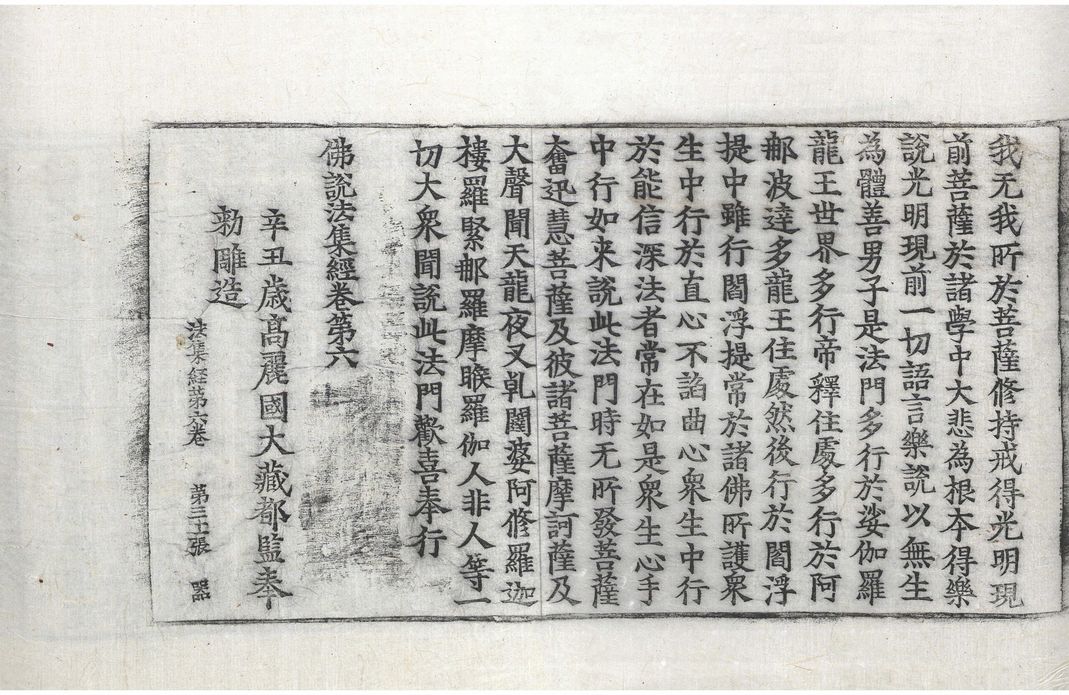 我无我所於菩薩修持戒得光明現
前菩薩於諸學中大悲為根本得樂
說光明現前一切語言樂說以無生
為體善男子是法門多行於娑伽羅
龍王世界多行帝釋住處多行於阿
那波達多龍王住處然後行於閻浮
提中雖行閻浮提常於諸佛所護衆
生中行於直心不諂曲心衆生中行
於能信深法者常在如是衆生心手
中行如来說此法門時无所發菩薩
奮迅慧菩薩及彼諸菩薩摩訶薩及
大聲聞天龍夜叉乹闥婆阿修羅迦
樓羅緊那羅摩睺羅伽人非人等一
切大衆聞說此法門歡喜奉行
佛說法集經卷第六
辛丑歲高麗國大藏都監奉
勑雕造
法集経苐六卷 第三十張 器